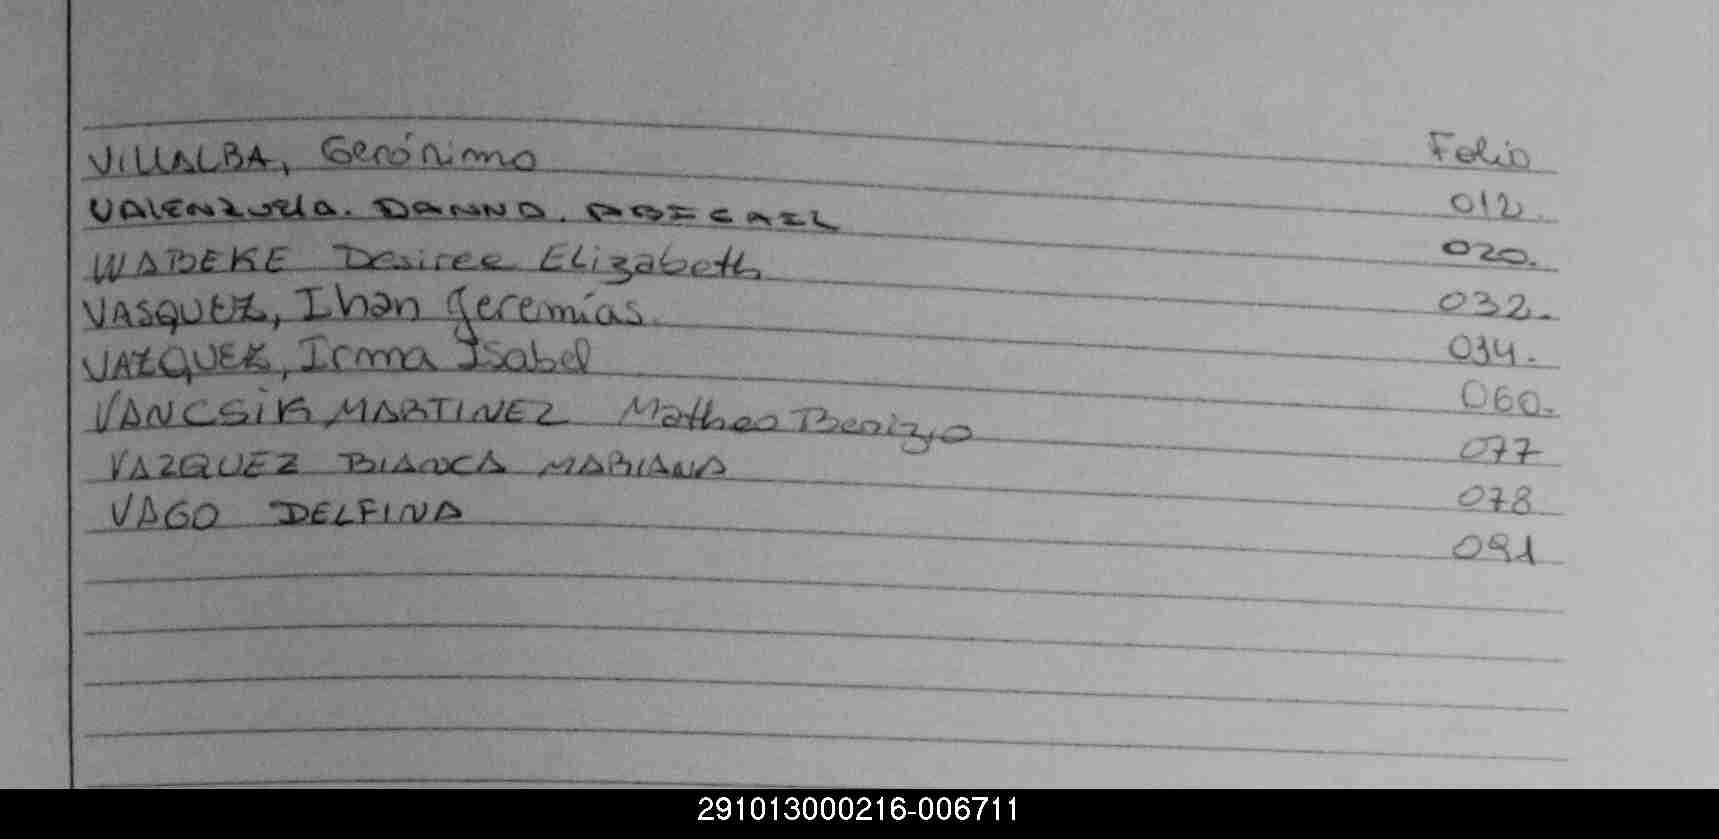 Folio
VILLALBA, Gerónimo 012.
VALENZUElA. DANNA. ABIGAIL 020.
WABEKE Desiree Elizabeth 032.
VASQUEZ, Ihan Jeremías. 034.
VAZQUEZ, Irma Isabel 060.
VANCSIK MARTINEZ Matheo Benizio 077
VAZQUEZ BIANCA MARIANA 078
VAGO DELFINA 091
291013000216-006711